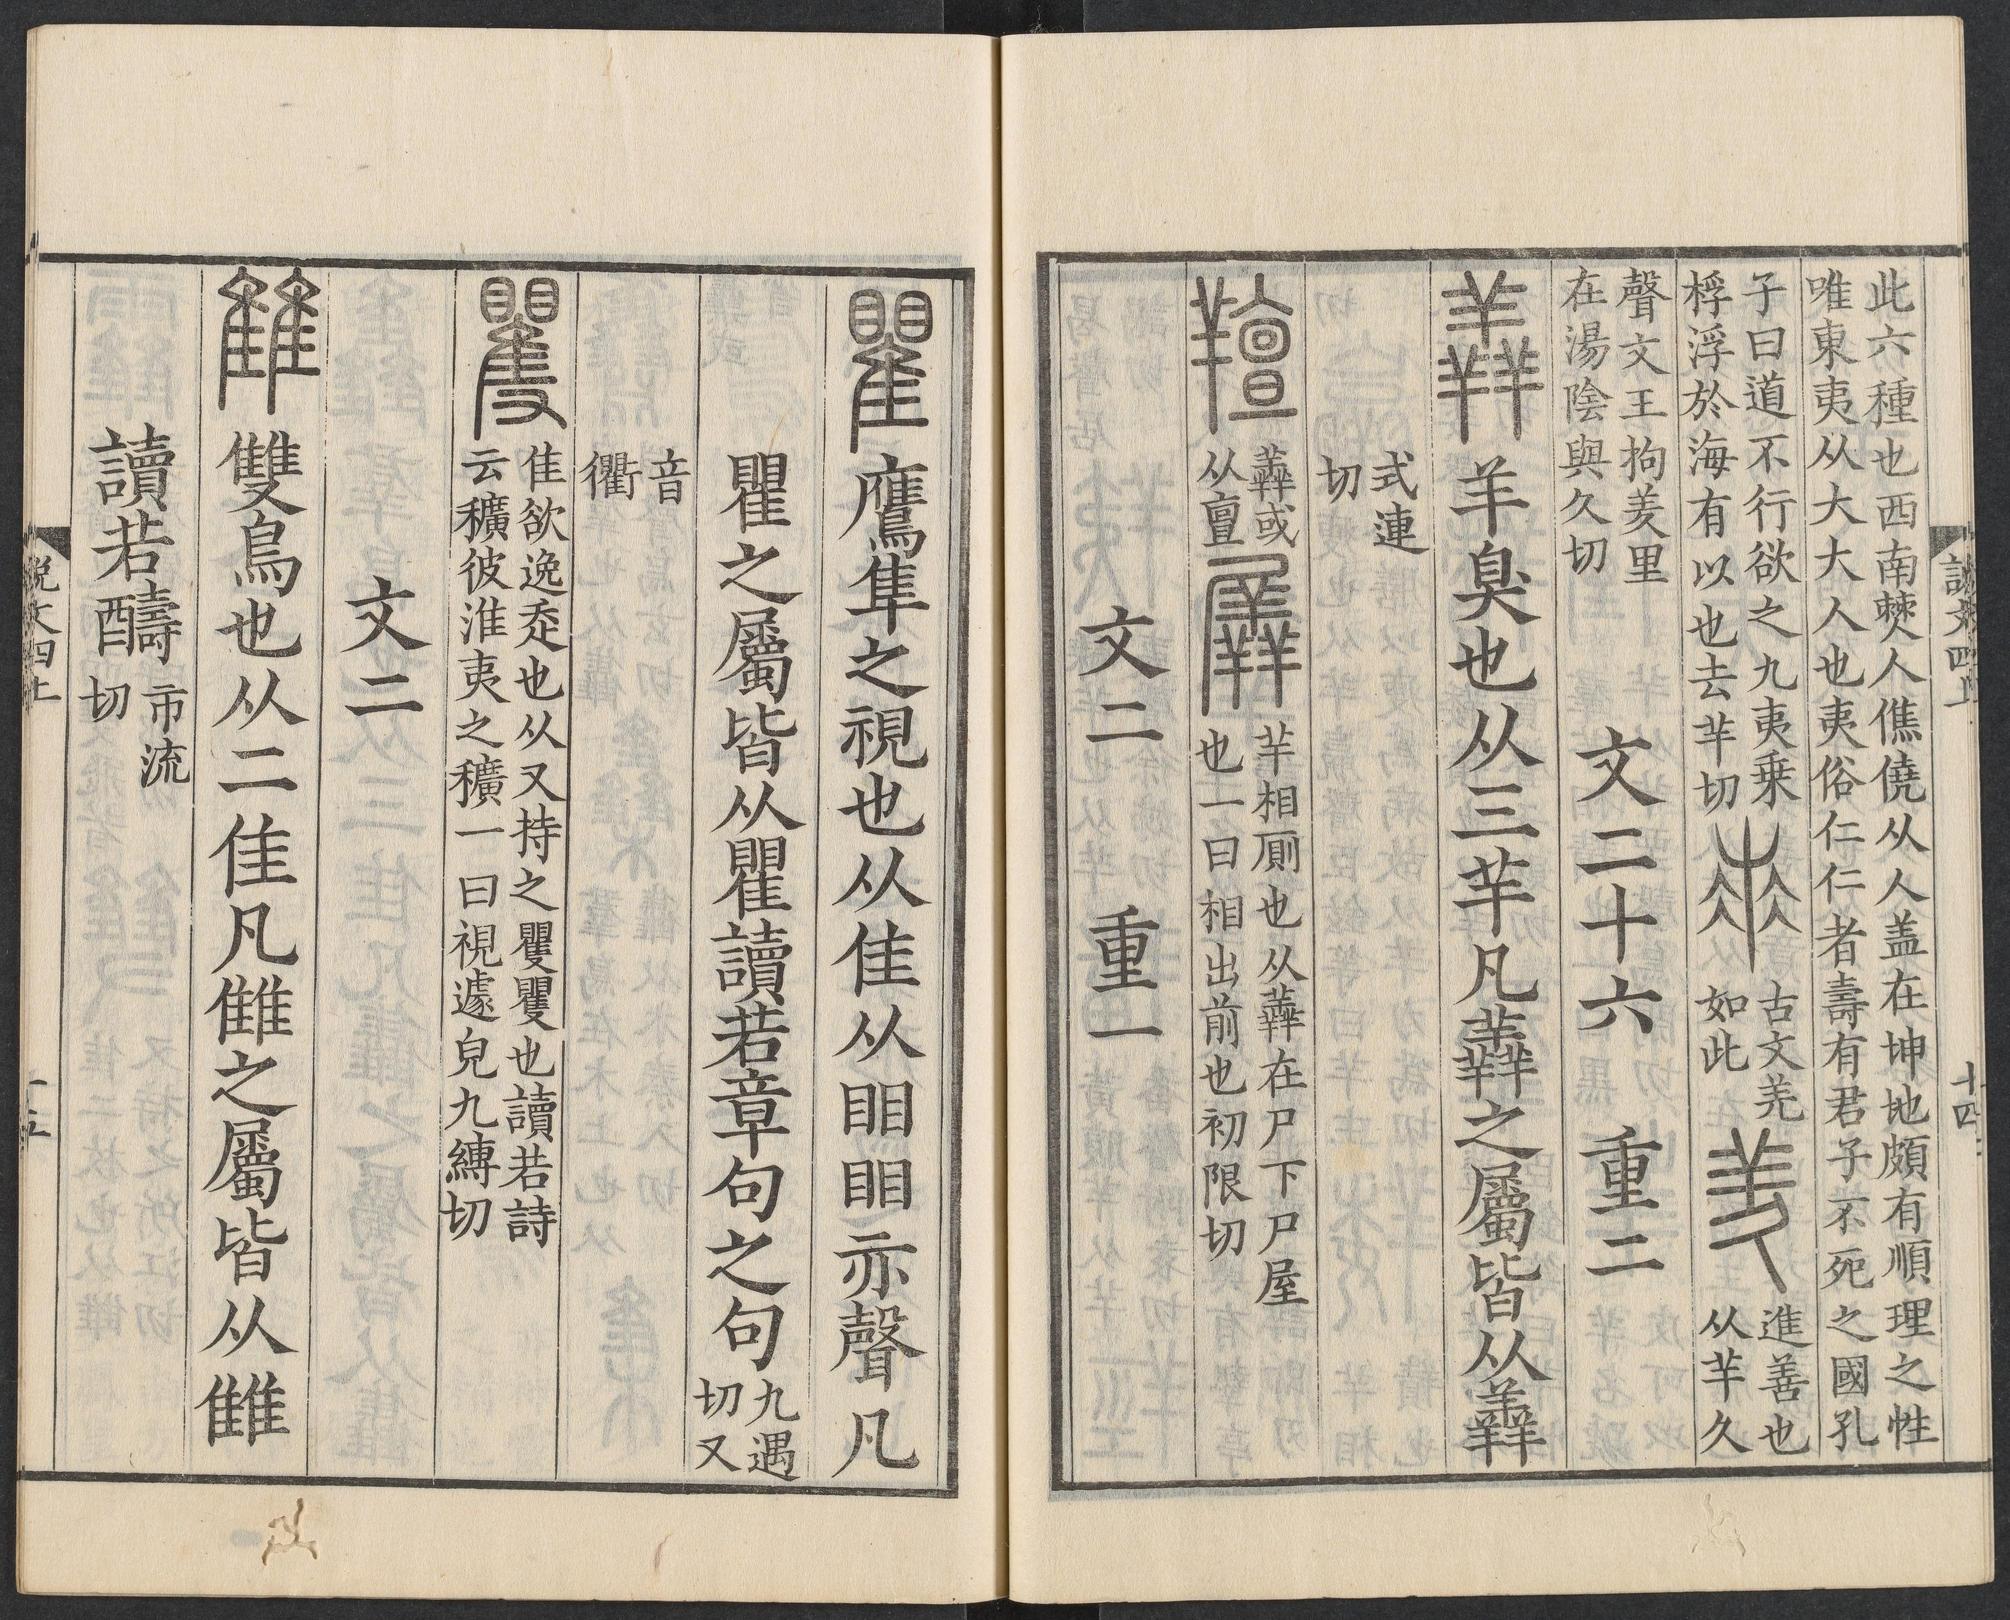 說文四上
十四
此六種也西南僰人僬僥从人盖在坤地頗有順理之性
唯東夷从大大人也夷俗仁仁者壽有君子不死之國孔
子曰道不行欲之九夷乗
桴浮於海有以也去羊切
古文羌
如此
羑
進善也
从羊久
聲文王拘羑里
在湯陰與久切
文二十六 重二
羴 羊臭也从三羊凡羴之屬皆从羴
式連
切
羶
羴或
从亶
羼
羊相厠也从羴在尸下尸屋
也一曰相出前也初限切
文二 重一
瞿 鷹隼之視也从隹从䀠䀠亦聲凡
瞿之屬皆从瞿讀若章句之句
九遇
切又
音
衢
矍
隹欲逸走也从又持之矍矍也讀若詩
云穬彼淮夷之穬一曰視遽皃九縛切
文二
雔 雙鳥也从二隹凡雔之屬皆从雔
讀若醻
市流
切
說文四上
十五